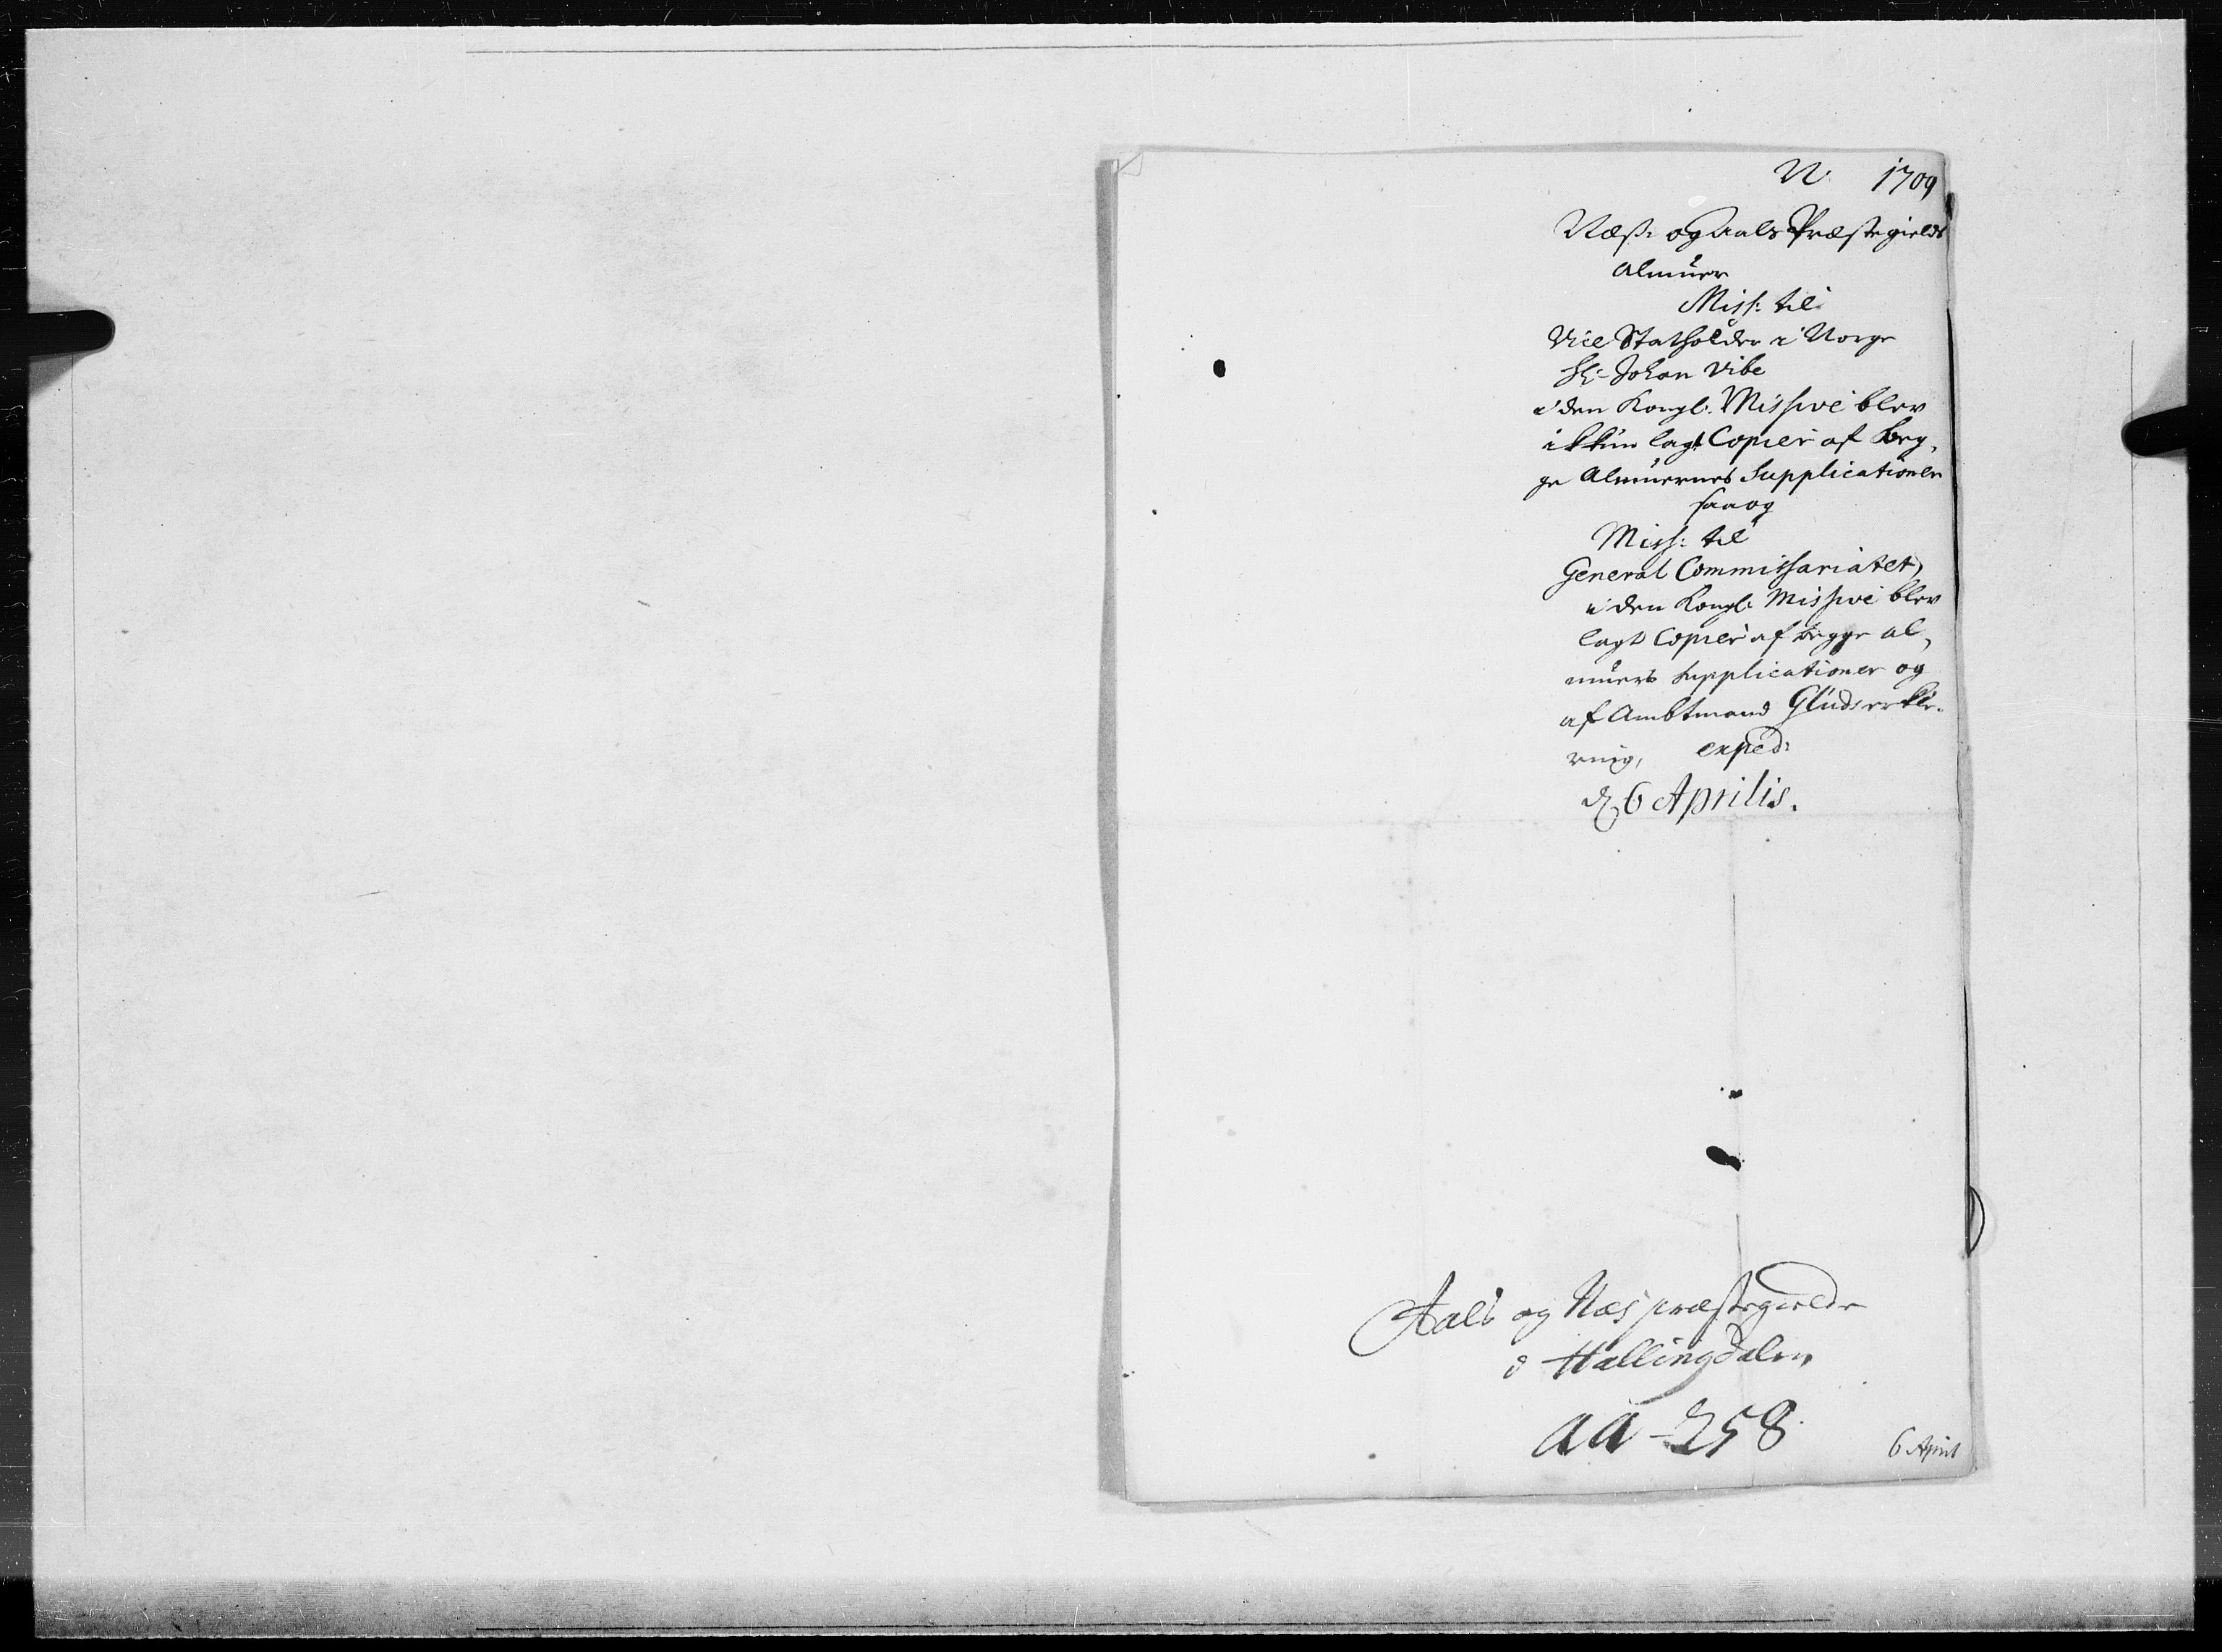 N. 1709
Næs: og Aals Præstegields
Almuer
Miss: til
Vice Statholder i Norge
Hr: Johan Vibe
i den Kongl: Missive blev
ikkun lagt Copier af beg,
ge Almuernes Supplicationer
saa og
Miss: til
General Commissariatet,
i den Kongl: Missive blev
lagt Copier af begge al,
muers Supplicationer og
af Ambtmand Gluds erklæ,
ring, exped:
d 6 Aprilis.
Aals og Næs præstegielde
i Hallingdalen
aa-258
6 April